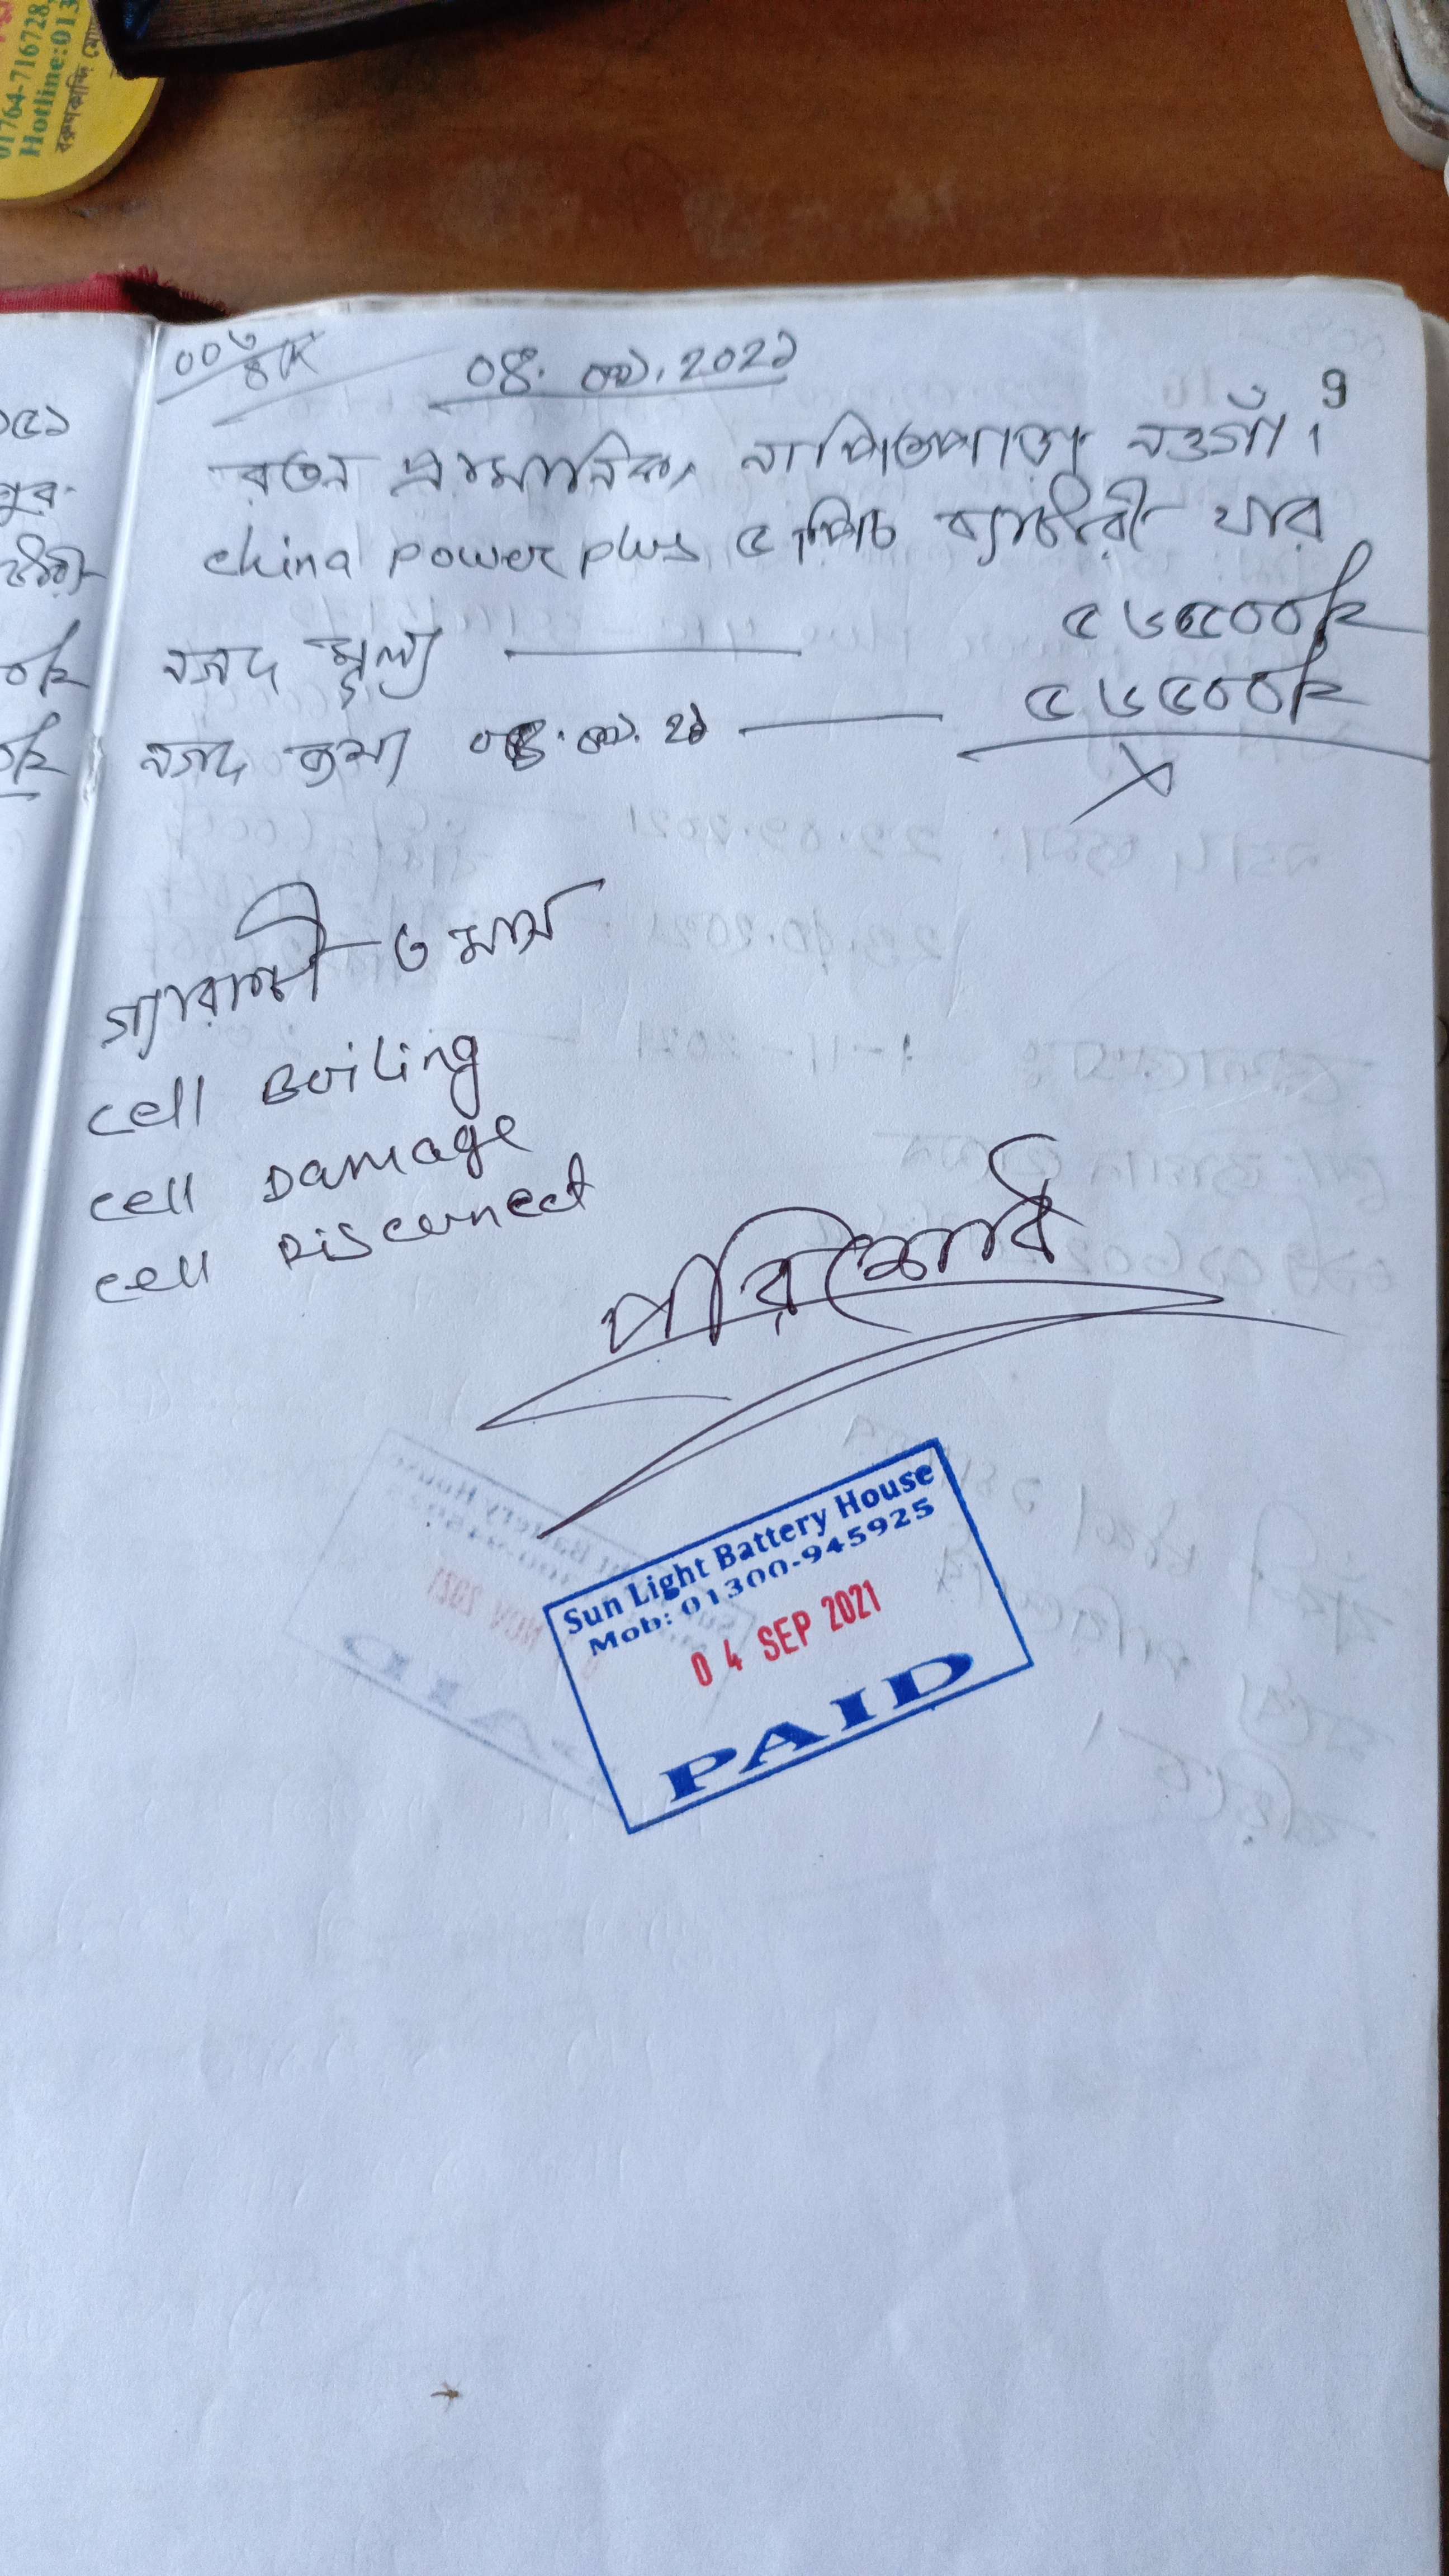 01764-716728,
Hotline:013
০৪. ০৯. 2021
9
রতন প্রামানিক, নাপিতপাড়া নওগাঁ।
china power plus ৫ পিচ ব্যাটারী যার
নগদ মূল্য ৫৬৫০০/=
নগদ জমা ০৪.০৯.২১ ৫৬৫০০/=
X
গ্যারান্টী ৩ মাস
cell Boiling
cell Damage
cell Disconnect
পরিশোধ
Sun Light Battery House
Mob: 01300-945925
04 SEP 2021
PAID